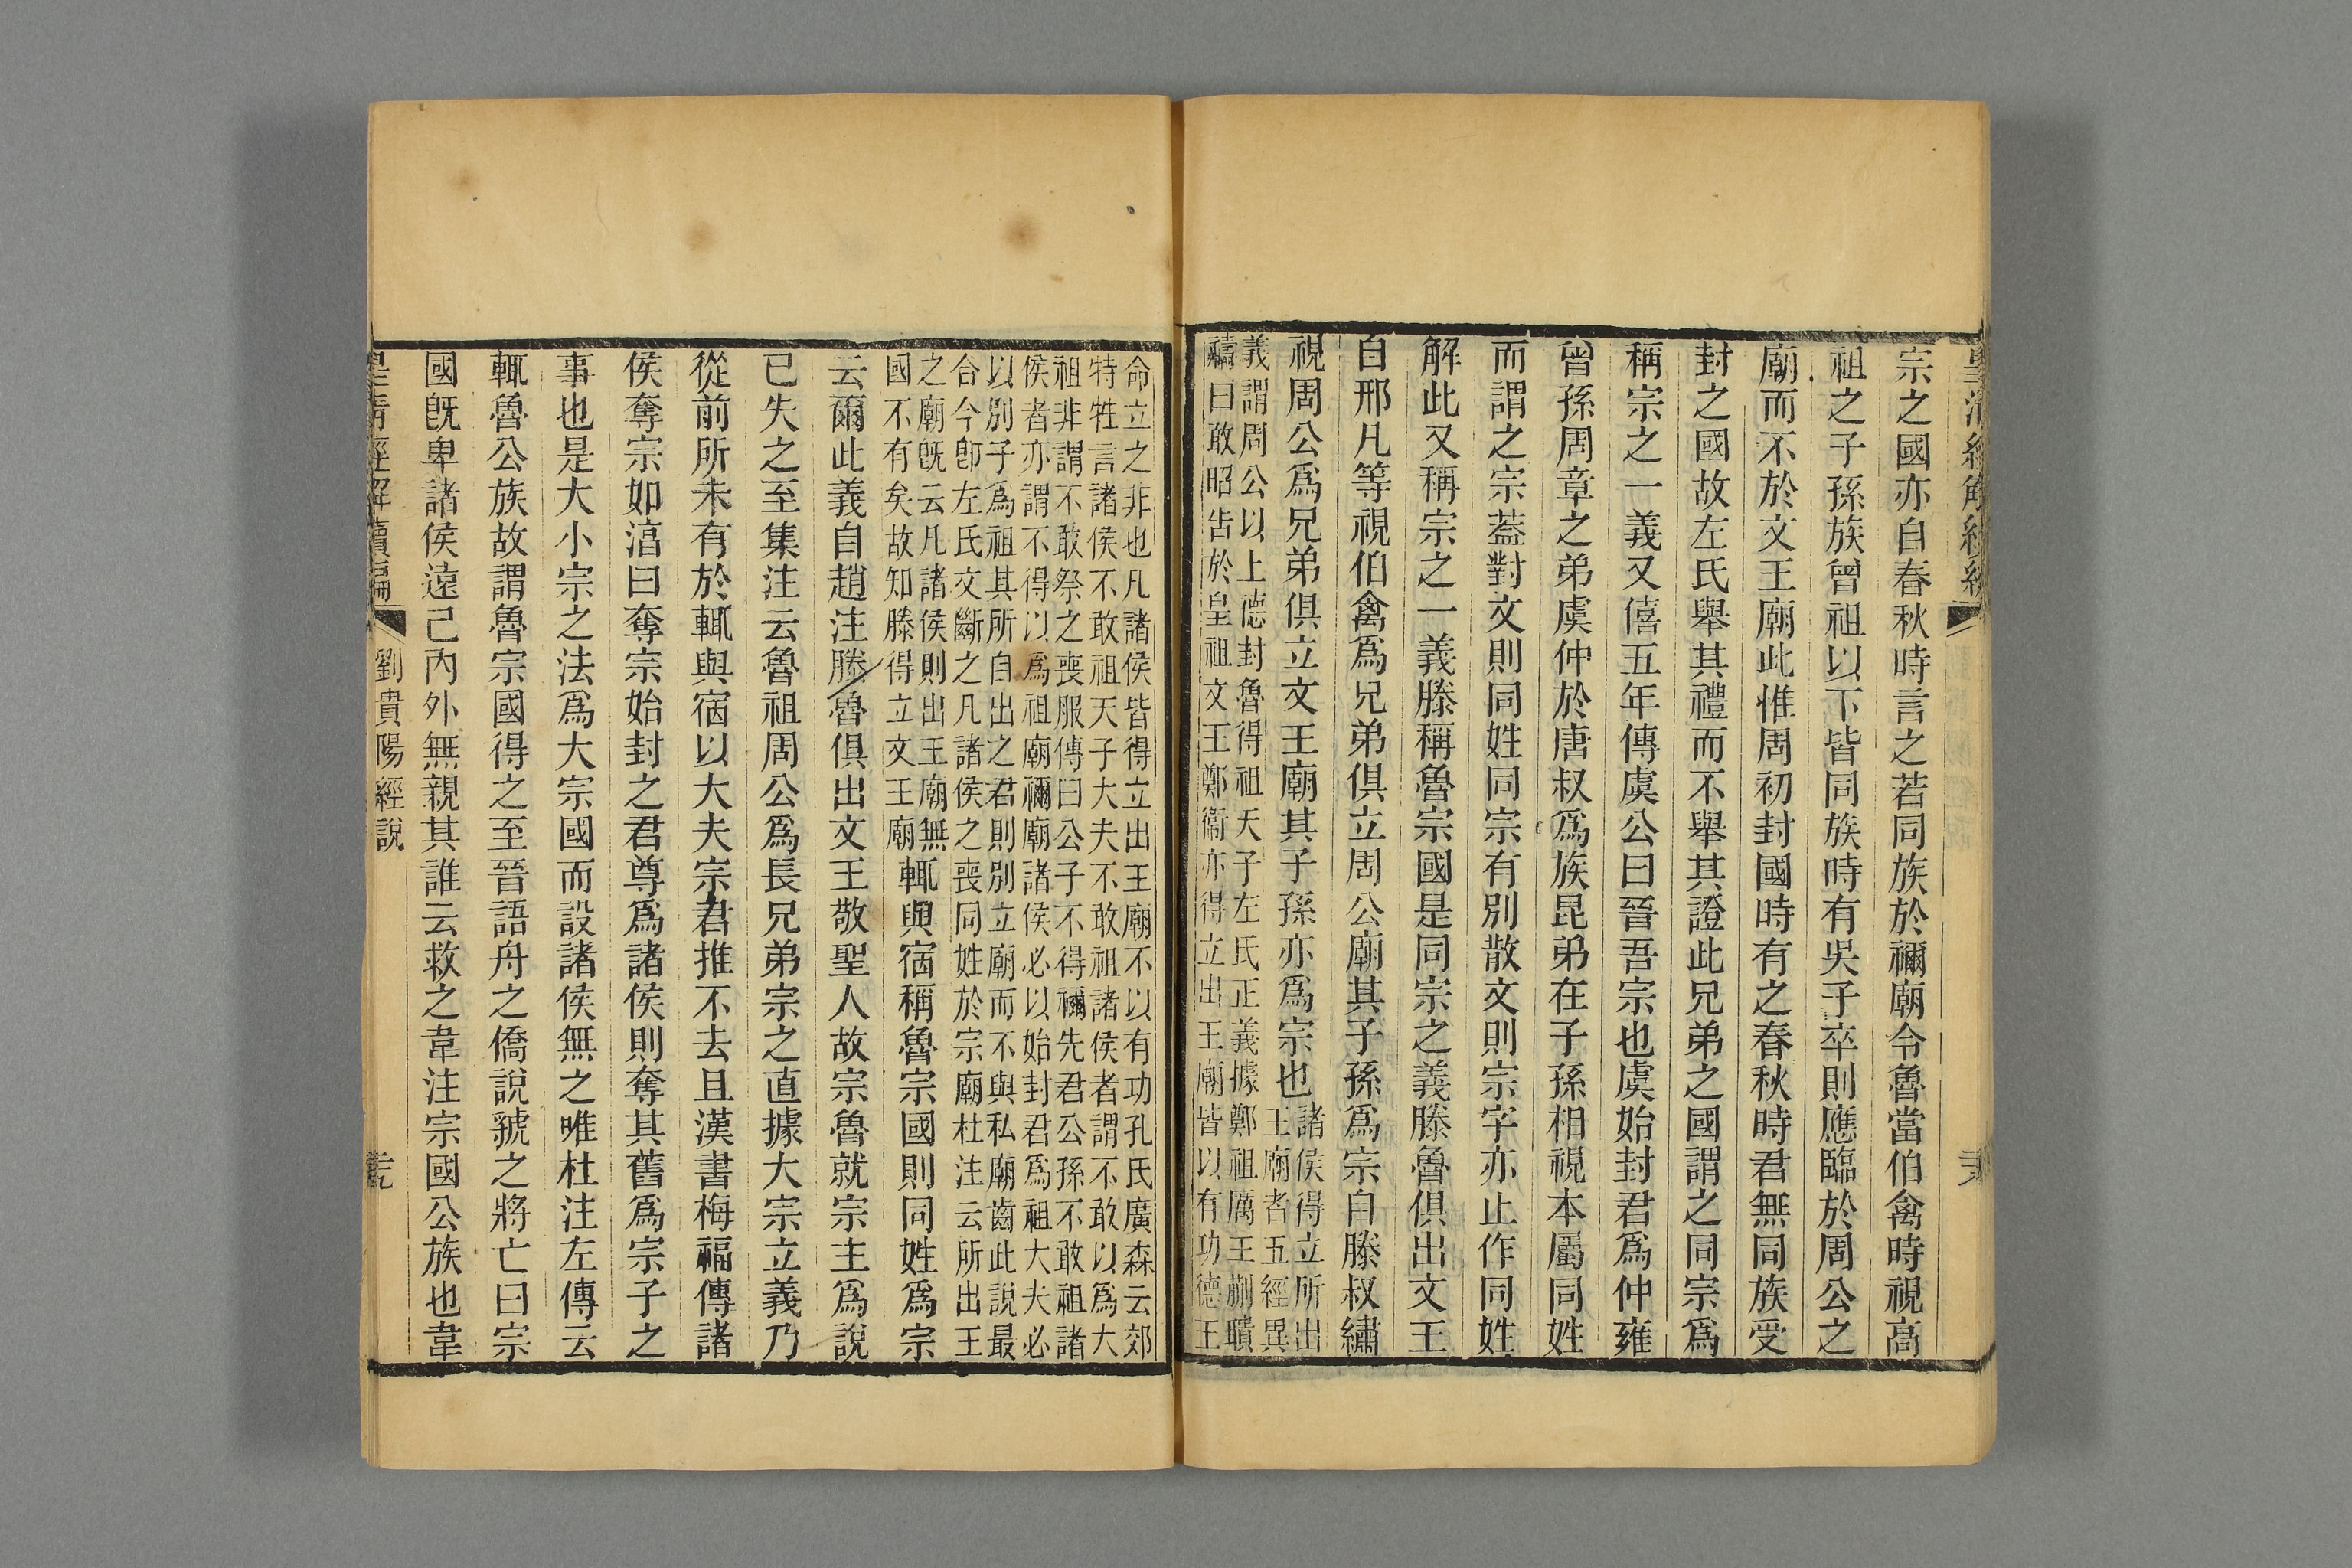 宗之國亦自春秋時言之若同族於禰廟令魯當伯禽時視高
祖之子孫族曾祖以下皆同族時有吳子卒則應臨於周公之
廟而不於文王廟此惟周初封國時有之春秋時君無同族受
封之國故左氏舉其禮而不舉其證此兄弟之國謂之同宗爲
稱宗之一義又僖五年傳虞公曰晉吾宗也虞始封君爲仲雍
曾孫周章之弟虞仲於唐叔爲族昆弟在子孫相視本屬同姓
而謂之宗葢對文則同姓同宗有別散文則宗字亦止作同姓
解此又稱宗之一義滕稱魯宗國是同宗之義滕魯俱出文王
自邢凡等視伯禽爲兄弟俱立周公廟其子孫爲宗自滕叔繡
視周公爲兄弟俱立文王廟其子孫亦爲宗也
諸侯得立所出
王廟者五經異
義謂周公以上德封魯得祖天子左氏正義據鄭祖厲王蒯聵
禱曰敢昭告於皇祖文王鄭衞亦得立出王廟皆以有功德王
命立之非也凡諸侯皆得立出王廟不以有功孔氏廣森云郊
特牲言諸侯不敢祖天子大夫不敢祖諸侯者謂不敢以爲大
祖非謂不敢祭之喪服傳曰公子不得禰先君公孫不敢祖諸
侯者亦謂不得以爲祖廟禰廟諸侯必以始封君爲祖大夫必
以別子爲祖其所自出之君則別立廟而不與私廟齒此說最
合今卽左氏文斷之凡諸侯之喪同姓於宗廟杜注云所出王
之廟旣云凡諸侯則出王廟無
國不有矣故知滕得立文王廟
輒與宿稱魯宗國則同姓爲宗
云爾此義自趙注滕魯俱出文王敬聖人故宗魯就宗主爲說
已失之至集注云魯祖周公爲長兄弟宗之直據大宗立義乃
從前所未有於輒與宿以大夫宗君推不去且漢書梅福傳諸
侯奪宗如湻曰奪宗始封之君尊爲諸侯則奪其舊爲宗子之
事也是大小宗之法爲大宗國而設諸侯無之唯杜注左傳云
輒魯公族故謂魯宗國得之至晉語舟之僑說虢之將亡曰宗
國旣卑諸侯遠己內外無親其誰云救之韋注宗國公族也韋
皇清經解續編
劉貴陽經說